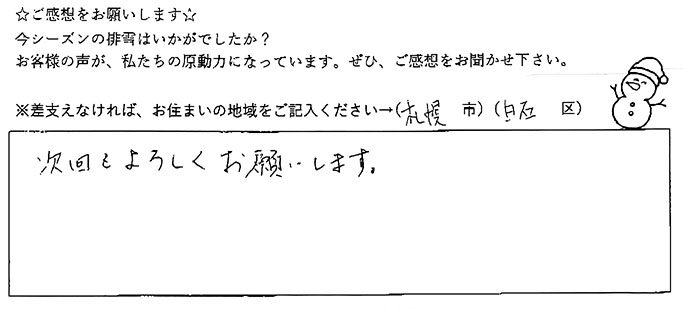 ☆ご感想をお願いします☆
今シーズンの排雪はいかがでしたか？
お客様の声が、私たちの原動力になっています。ぜひ、ご感想をお聞かせ下さい。
※差支えなければ、お住まいの地域をご記入ください→(札幌 市) (白石 区)
次回もよろしくお願いします。